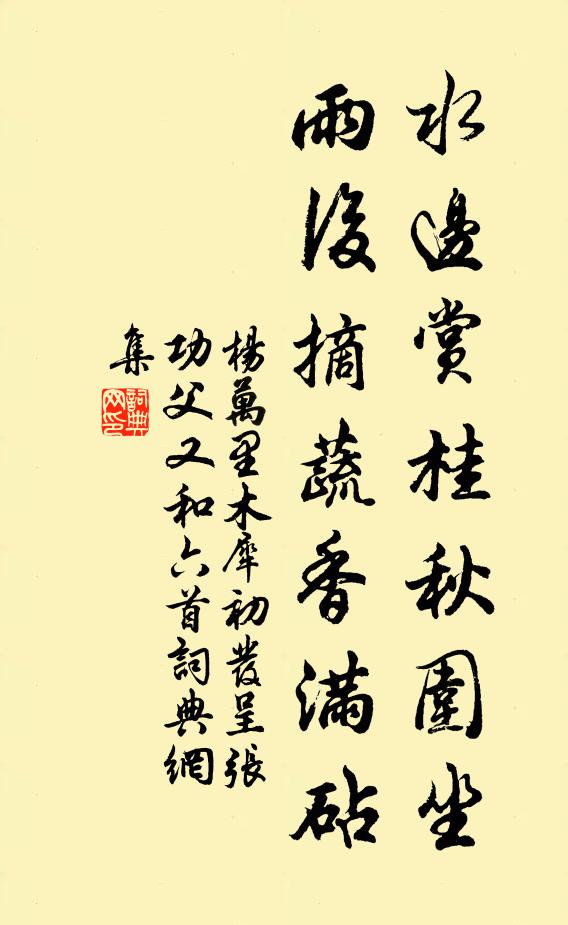 水邊賞桂秋圍坐
雨後摘蔬香滿砧
楊萬里木犀初發呈張
功父又和六首詞典網
集
詞典
網印